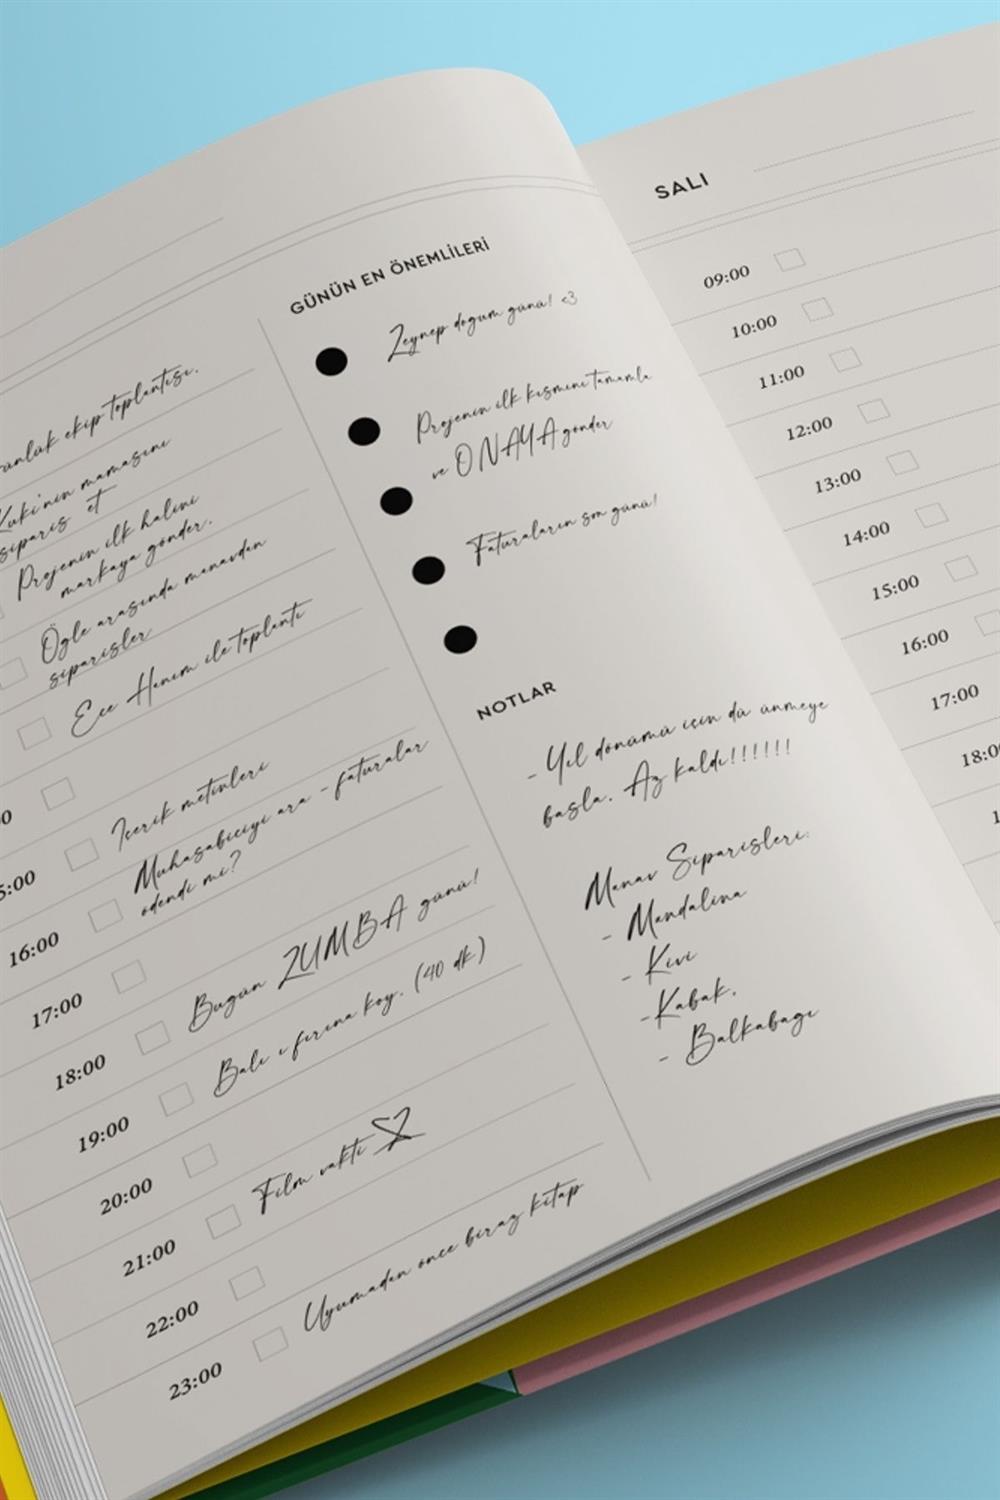 günlük ekip toplantısı.
Kuki'nin mamasını
sipariş et
Projenin ilk halini
markaya gönder.
Öğle arasında manavdan
siparişler
Ece Hanım ile toplantı
İçerik metinleri
16:00 Muhasabiciyi ara - faturalar
ödendi mi?
17:00
18:00 Bugün ZUMBA günü!
19:00 Balı ı fırına koy. (40 dk)
20:00
21:00 Film vakti
22:00
23:00 Uyumadan önce biraz kitap
GÜNÜN EN ÖNEMLİLERİ
Zeynep doğum günü! <3
Projenin ilk kısmını tamamla
ve ONAYA gönder
Faturaların son günü!
NOTLAR
- Yıl dönümü için dü ünmeye
başla. Az kaldı!!!!!!
Manav Siparişleri:
- Mandalina
- Kivi
- Kabak,
- Balkabağı
SALI
09:00
10:00
11:00
12:00
13:00
14:00
15:00
16:00
17:00